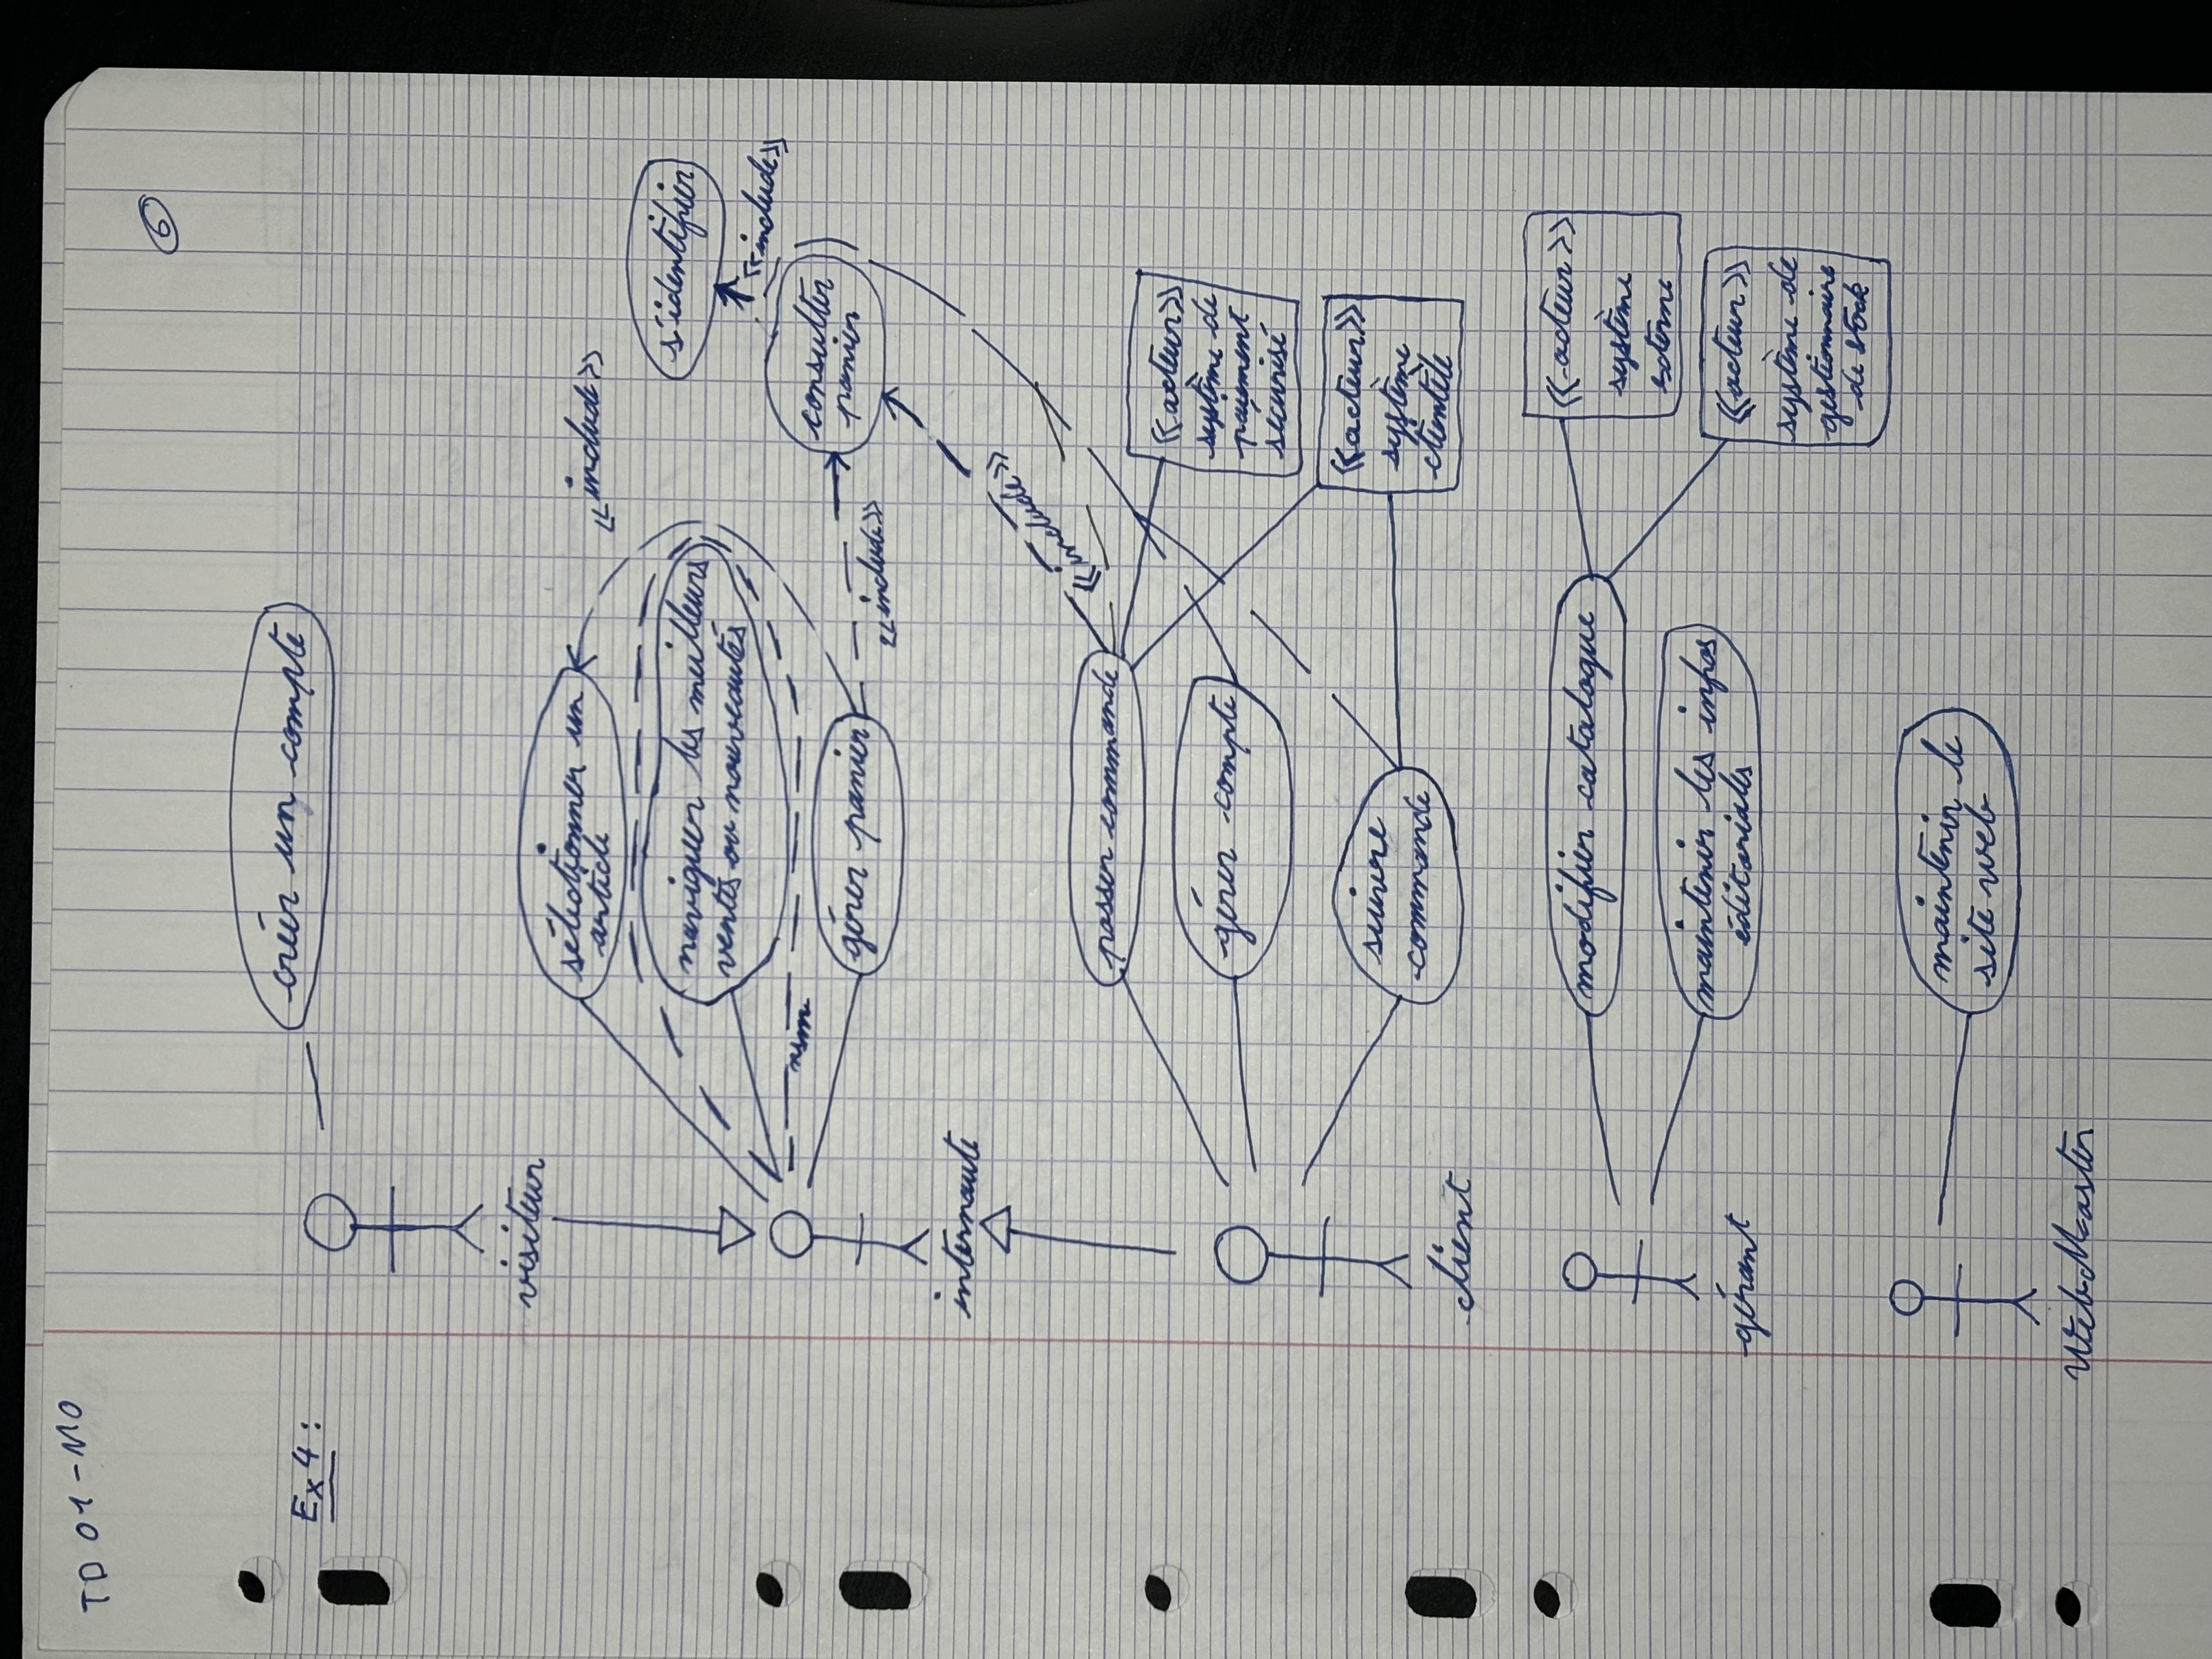 TD 01-MO
6
Ex4 :
créer un compte
visiteur
sélectionner un
article
<<include>>
naviguer les meilleurs
ventes ou nouveautés
s'identifier
<<include>>
consulter
panier
gérer panier
<<include>>
internaute
<<include>>
passer commande
<<acteur>>
système de
paiement
sécurisé
gérer compte
<<acteur>>
système
clientèle
suivre
commande
client
modifier catalogue
<<acteur>>
système
externe
maintenir les infos
éditoriales
gérant
<<acteur>>
système de
gestionnaire
de stock
maintenir le
site web
WebMaster